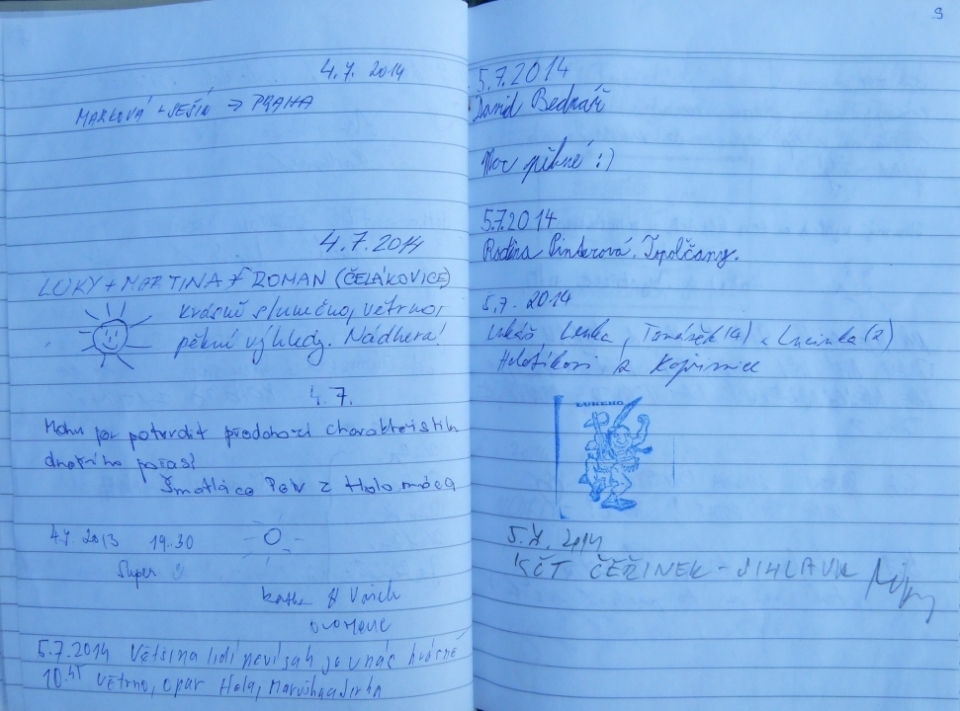 4.7. 2014
MARKOVÁ + JEŠIĆ → PRAHA
4.7.2014
LUKY + MARTINA + ROMAN (ČELÁKOVICE)
krásně slunečno, větrno,
pěkné výhledy. Nádhera!
4.7.
Mohu jen potvrdit předchozí charakteristiku
dnešního počasí
Šmatláco Petr z Holomóca
4.7. 2013 19.30
Super
Katka & Vašek
Olomouc
5.7.2014 Většina lidí neví jak je u nás krásně
10.45 Větrno, opar
9
5.7.2014
David Bednář
Moc pěkné :)
5.7.2014
Rodina Pinterová. Topolčany.
5.7. 2014
Lukáš, Lenka, Tomášek (4) a Lucinka (2)
Holotíkovi z Kopřivnice
5.7. 2014
KČT ČEŘINEK - JIHLAVA